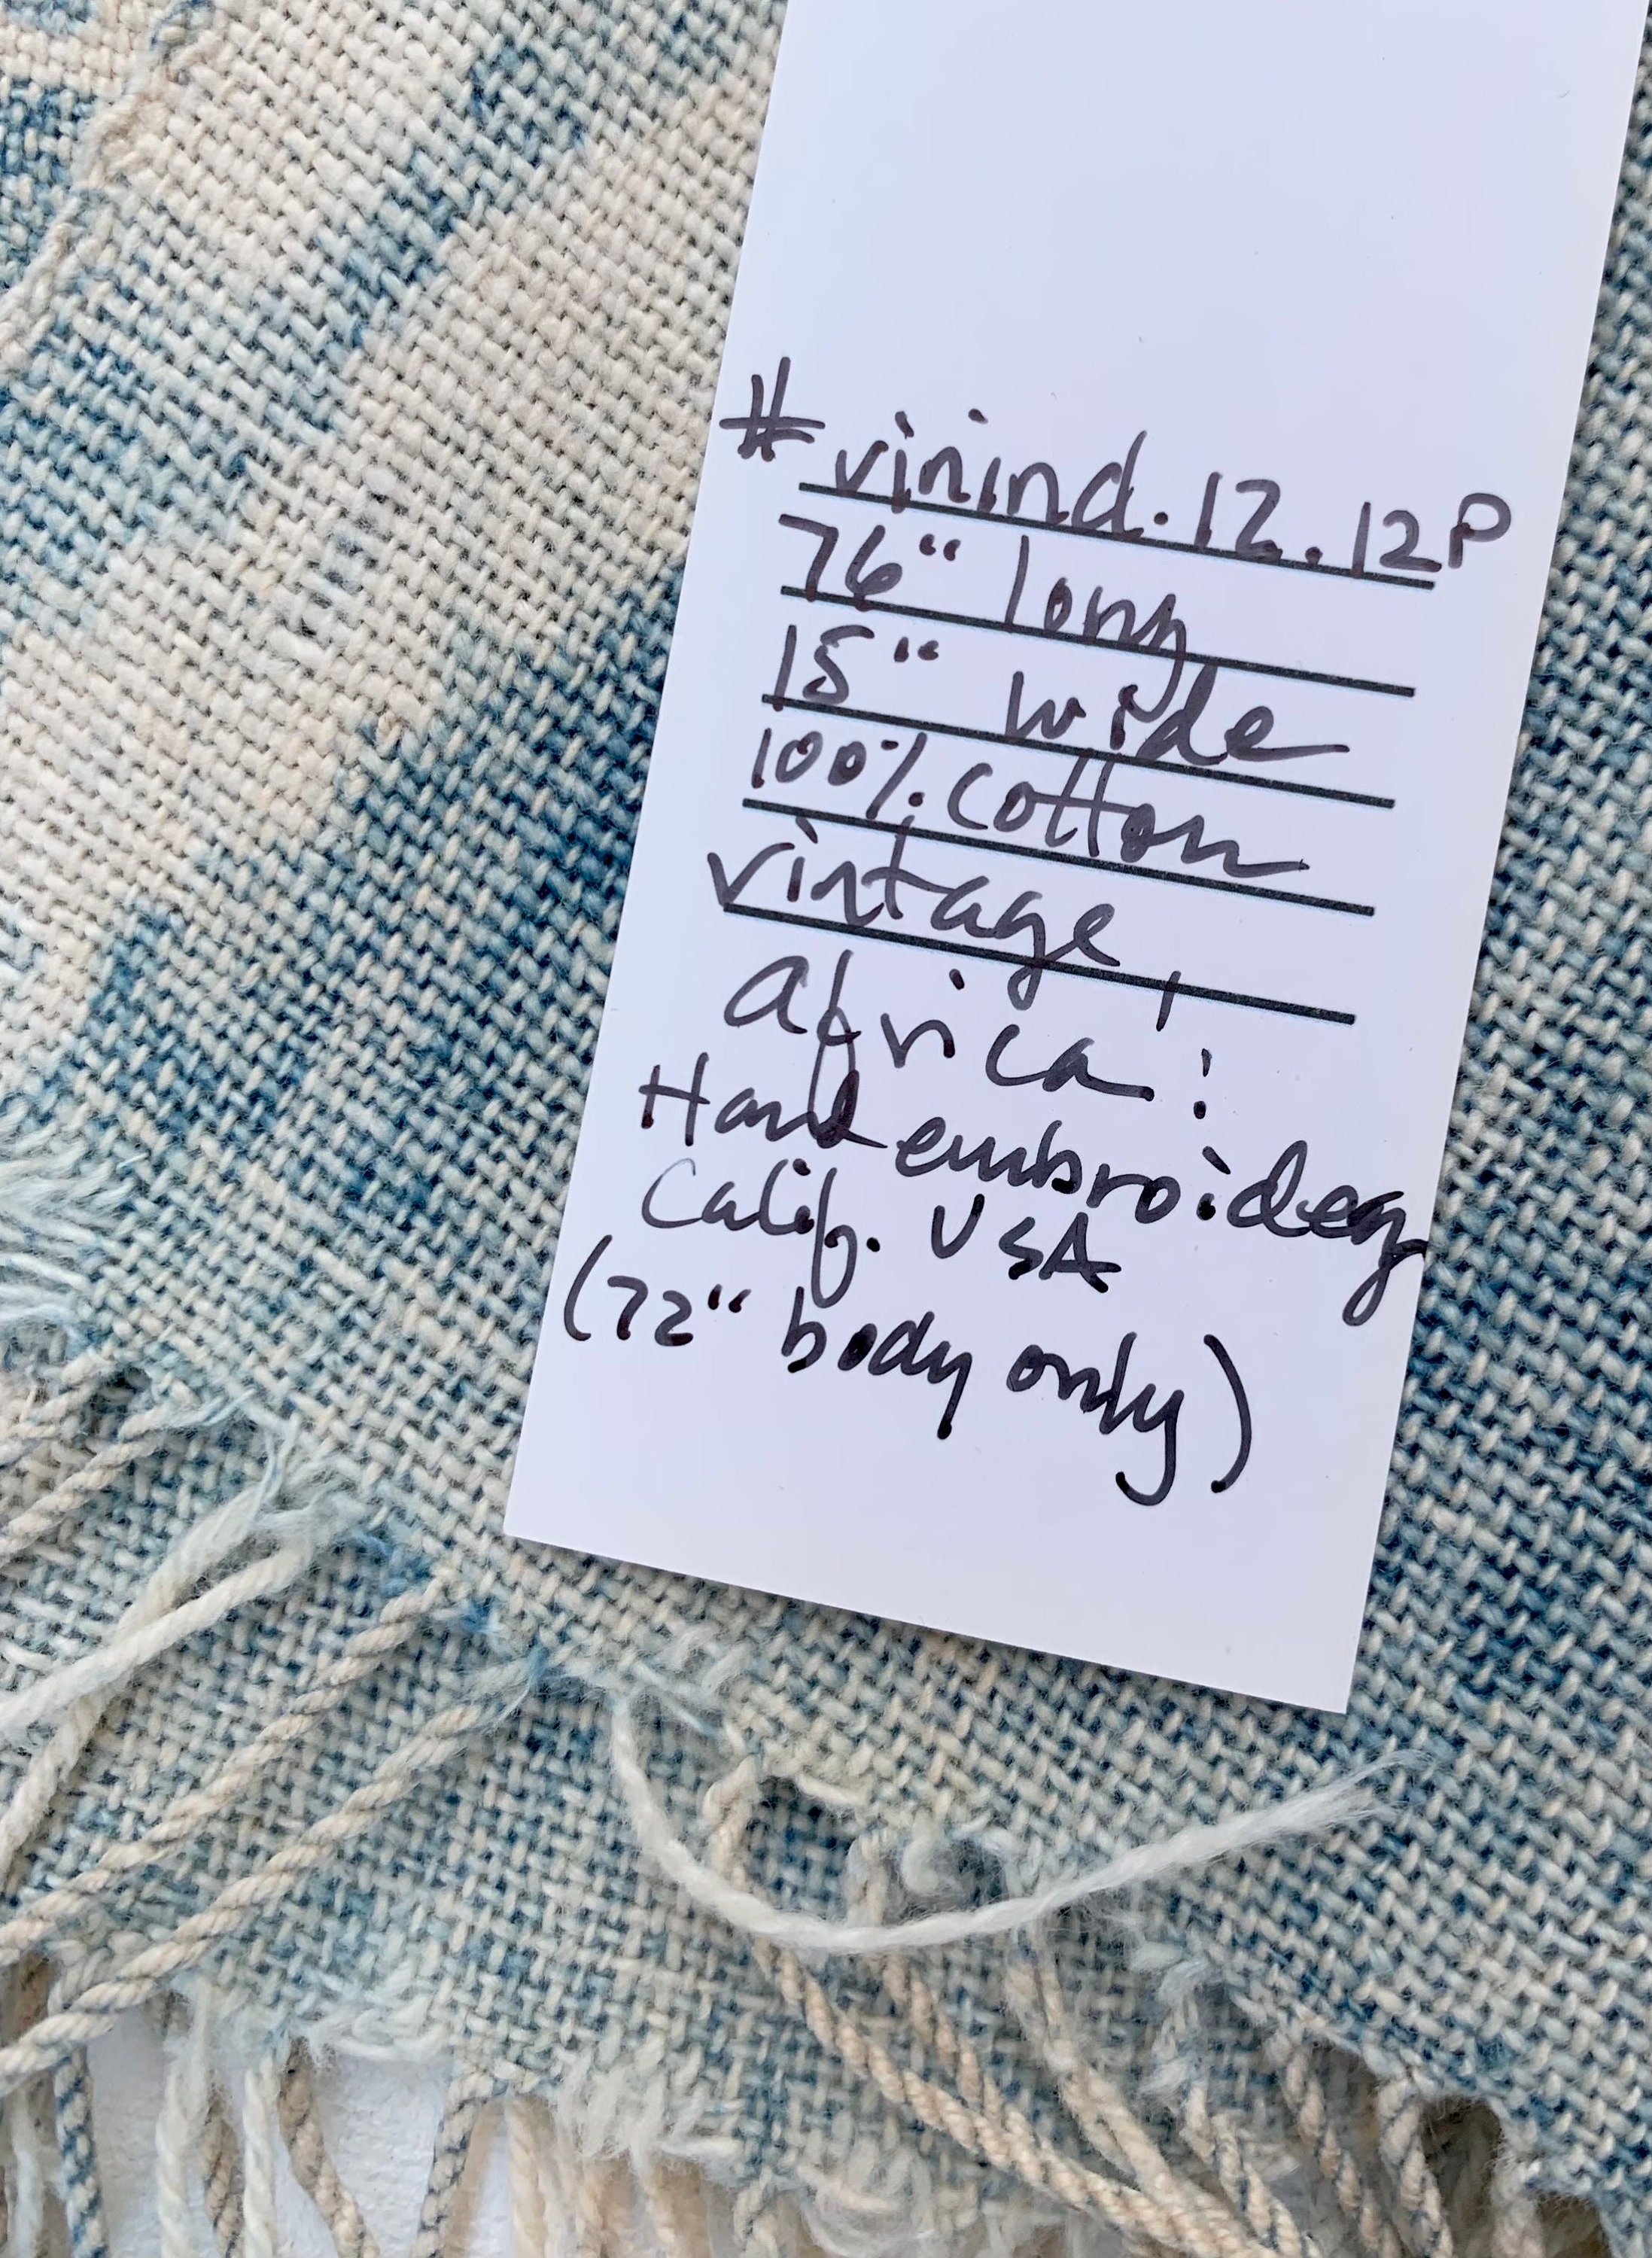 # vinind.12.12P
76" long
15" wide
100% cotton
vintage,
Africa:
Hand embroidery
Calif. USA
(72" body only)